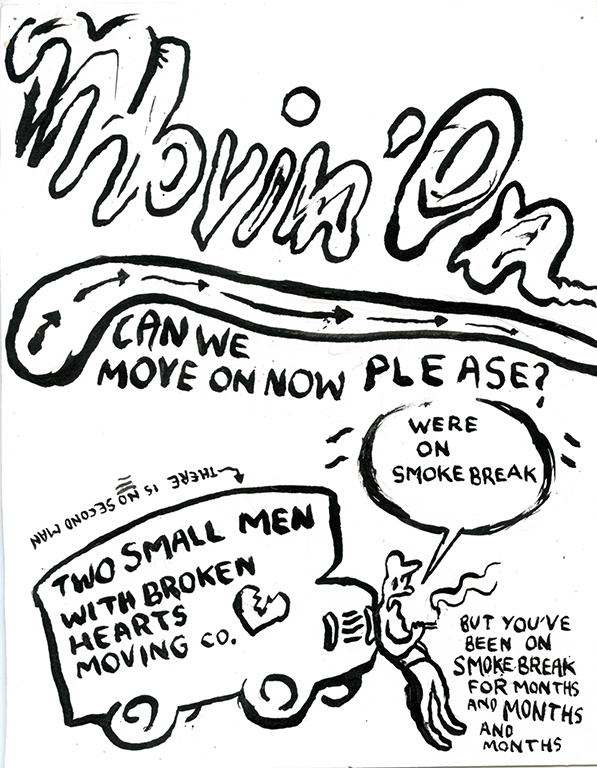 Movin' On
CAN WE
MOVE ON NOW PLEASE?
WERE
ON
SMOKE BREAK
THERE IS NO SECOND MAN
TWO SMALL MEN
WITH BROKEN
HEARTS
MOVING CO.
BUT YOU'VE
BEEN ON
SMOKE BREAK
FOR MONTHS
AND MONTHS
AND
MONTHS